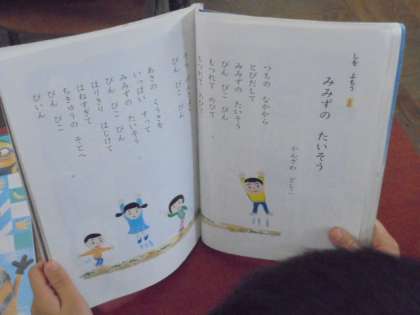 しを よもう
みみずの たいそう
かんざわ としこ
つちの なかから
とびだして
みみずの たいそう
ぴん ぴこ ぴん
もつれて のびて
ぴん ぴこ ぴん
あさの くうきを
いっぱい すって
みみずの たいそう
ぴん ぴこ ぴん
はりきり はじけて
はねすぎて
ちきゅうの そとへ
ぴん ぴこ
ぴーん